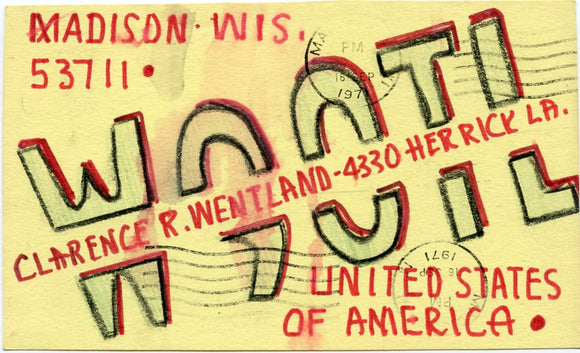 MADISON · WIS.
53711 •
PM
197
CLARENCE R. WENTLAND - 4330 HERRICK LA.
1971
PM
UNITED STATES
OF AMERICA •